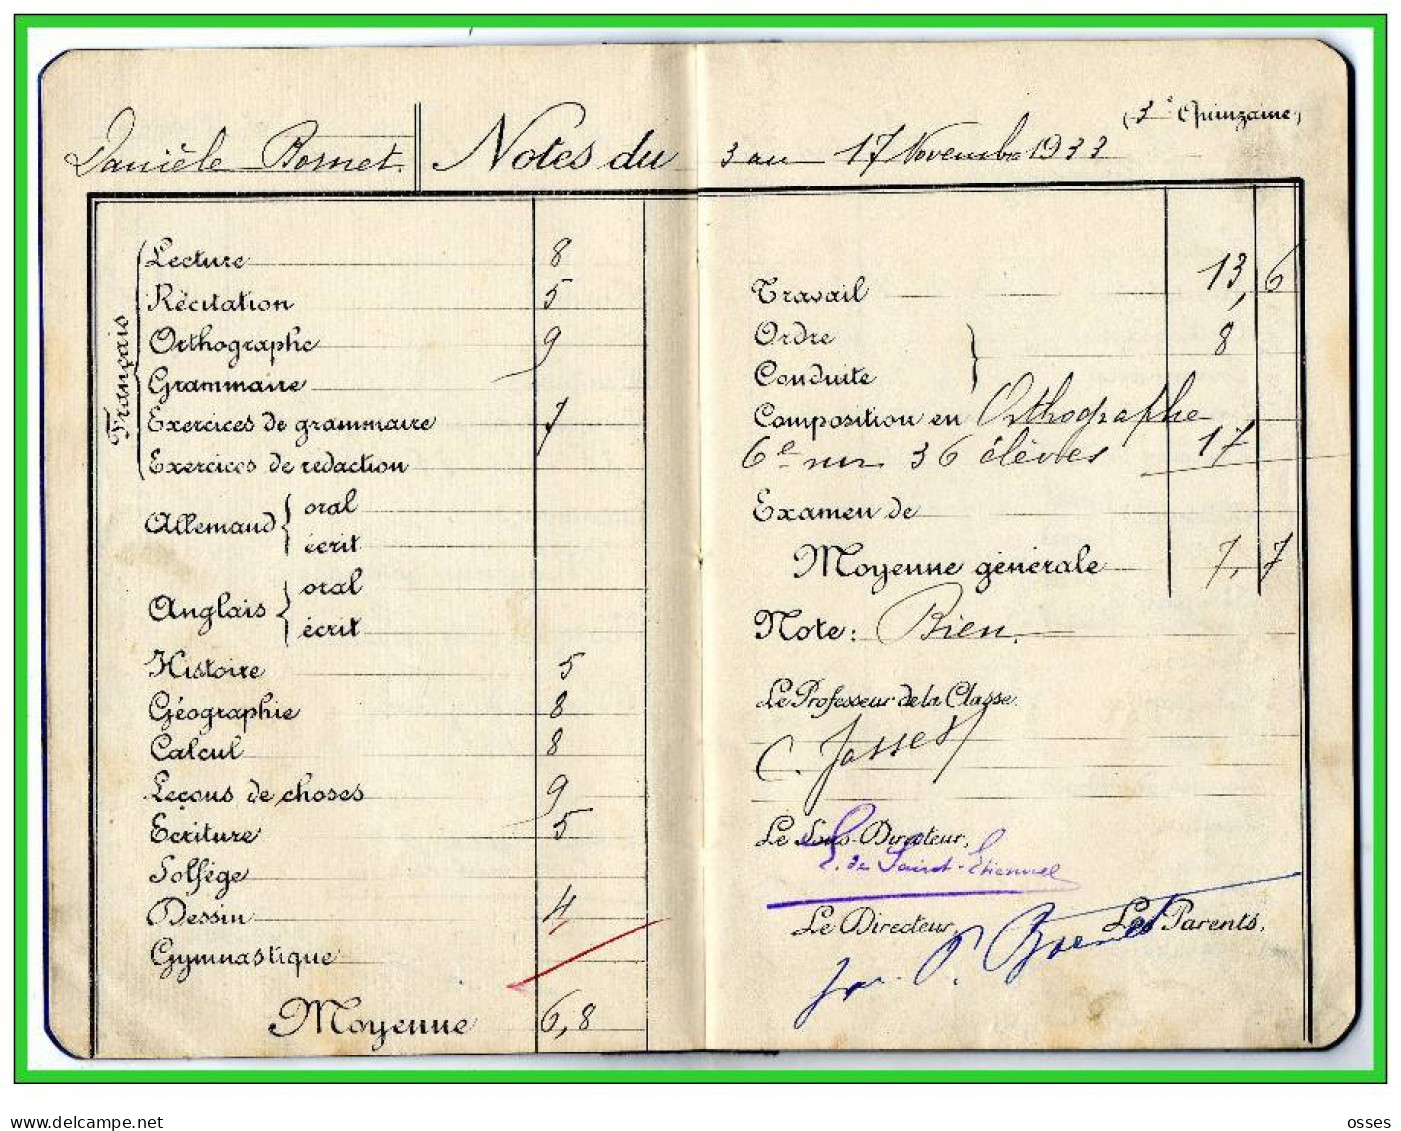 Danièle Bornet. Notes du 3 au 17 Novembre 1933
(3e Quinzaine)
Français
Lecture 8
Récitation 5
Orthographe 9
Grammaire
Exercices de grammaire 7
Exercices de redaction
Allemand { oral
écrit
Anglais { oral
écrit
Histoire 5
Géographie 8
Calcul 8
Leçons de choses 9
Ecriture 5
Solfège
Dessin 4
Gymnastique
Moyenne 6,8
Travail 13,6
Ordre 8
Conduite
Composition en Orthographe
6e sur 36 élèves 17
Examen de
Moyenne générale 7,7
Note: Bien.
Le Professeur de la Classe.
C. Jasset
Le Sous-Directeur,
E. de Saint-Etienne
Le Directeur, Les Parents,
P. Bornet
www.delcampe.net
osses